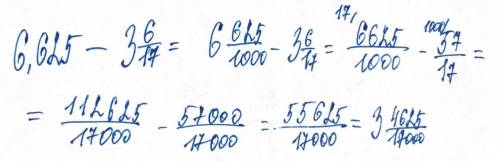 6,625 − 3 6/17 = 6 625/1000 − 3 6/17 = 17/ 6625/1000 − 1000/ 57/17 =
= 112625/17000 − 57000/17000 = 55625/17000 = 3 4625/17000